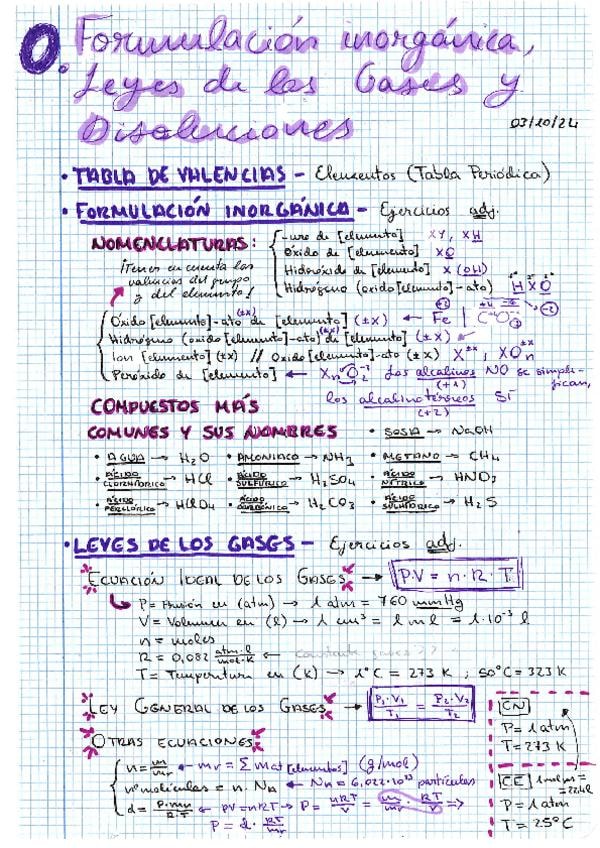 0. Formulación inorgánica,
Leyes de los Gases y
Disoluciones
03/10/24
• TABLA DE VALENCIAS - Elementos (Tabla Periódica)
• FORMULACIÓN INORGÁNICA - Ejercicios adj.
NOMENCLATURAS:
-uro de [elemento] XY, XH
Óxido de [elemento] XO
Hidróxido de [elemento] X (OH)
Hidrógeno (oxido [elemento]-ato) HXO
¡Tener en cuenta las
valencias del grupo
y del elemento!
Óxido [elemento]-ato de [elemento] (±x) ← Fe
Hidrógeno (oxido [elemento]-ato) de [elemento] (±x)
Ion [elemento] (±x) // Oxido [elemento]-ato (±x)
Peróxido de [elemento] ← Los alcalinos NO se simplifican,
(+1)
los alcalinotérreos SÍ
(+2)
COMPUESTOS MÁS
COMUNES Y SUS NOMBRES • SOSA → NaOH
• AGUA → H2O • AMONIACO → NH3 • METANO → CH4
• ÁCIDO CLORHÍDRICO → HCl • ÁCIDO SULFÚRICO → H2SO4 • ÁCIDO NÍTRICO → HNO3
• ÁCIDO PERCLÓRICO → HClO4 • ÁCIDO CARBÓNICO → H2CO3 • ÁCIDO SULFHÍDRICO → H2S
• LEYES DE LOS GASES - Ejercicios adj.
ECUACIÓN IDEAL DE LOS GASES → P·V = n·R·T
P = Presión en (atm) → 1 atm = 760 mmHg
V = Volumen en (l) → 1 cm³ = 1 ml = 1·10⁻³ l
n = moles
R = 0,082 atm·l/mol·K ←
T = Temperatura en (K) → 1°C = 273 K ; 50°C = 323 K
LEY GENERAL DE LOS GASES → P1·V1/T1 = P2·V2/T2
OTRAS ECUACIONES
n = m/mr ← mr = Σ mat [elementos] (g/mol)
nº moléculas = n · NA ← NA = 6,022·10²³ partículas
d = P·mr/R·T ← PV = nRT → P = nRT/V = m/mr · RT/V ⇒
P = d · RT/mr
CN
P = 1 atm
T = 273 K
CE 1 mol gas = 22,4 l
P = 1 atm
T = 25°C